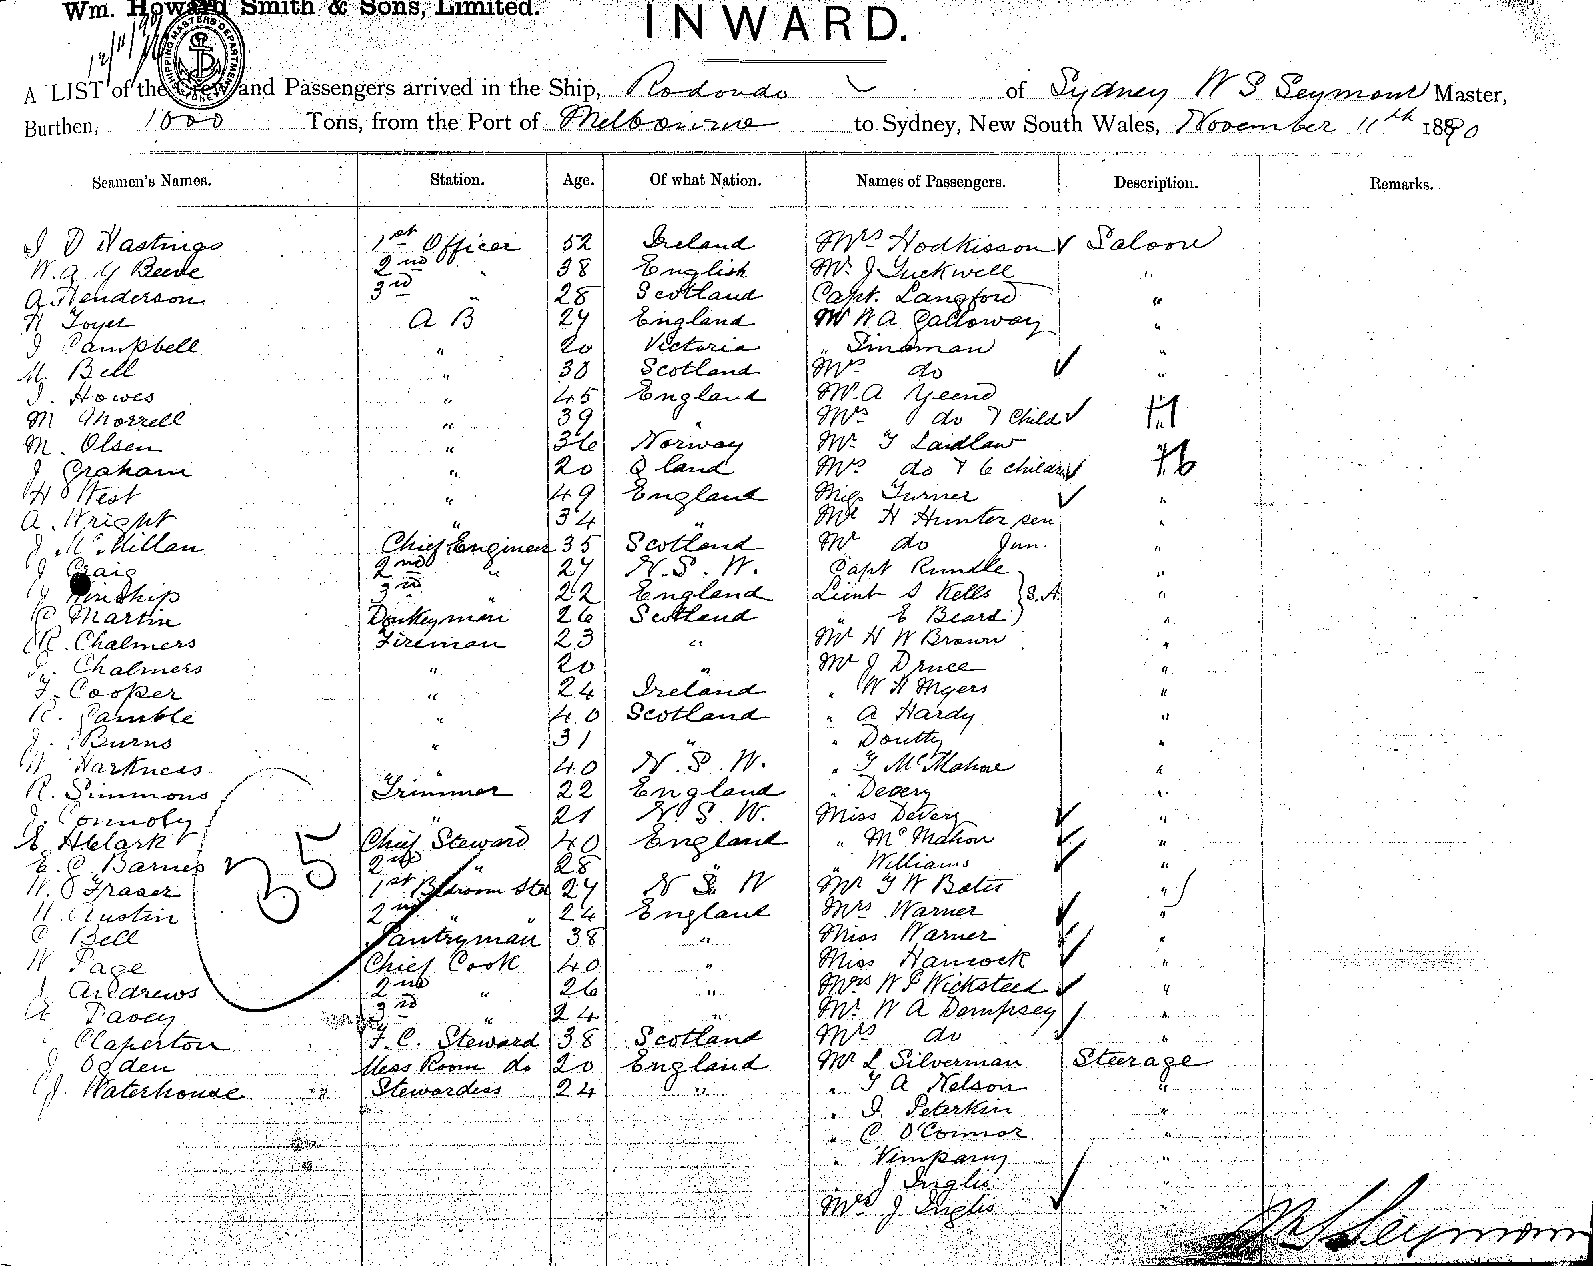 Wm. Howard Smith & Sons, Limited.
INWARD.
SHIPPING MASTERS DEPARTMENT
A LIST of the Crew and Passengers arrived in the Ship, Rodondo of Sydney W S Seymour Master,
Burthen, 1000 Tons, from the Port of Melbourne to Sydney, New South Wales, November 11th 1890
Seamen's Names. Station. Age. Of what Nation. Names of Passengers. Description. Remarks.
J D Hastings 1st Officer 52 Ireland Mrs Hodkisson Saloon
W. A Y Beeve 2nd " 38 English Mr J Tuckwell "
A Henderson 3rd " 28 Scotland Capt. Langford "
H Toyer A B 27 England Mr W A Galloway "
J Campbell " 20 Victoria " Sinsman "
M. Bell " 30 Scotland Mrs do "
J. Howes " 45 England Mr A Yeend
M Morrell " 39 " Mrs do & Child +1
M. Olsen " 36 Norway Mr T Laidlaw "
J Graham " 20 Q land Mrs do & 6 children +6
H West " 49 England Miss Turner "
A. Wright " 34 " Mr H Hunter sen "
J McMillan Chief Engineer 35 Scotland Mr do Jun. "
J Craig 2nd " 27 N. S. W. Capt Rundle "
J Kinship 3rd " 22 England Lieut S Kells } S.A. "
C Martin Donkeyman 26 Scotland " E Beard } "
R. Chalmers Fireman 23 " Mr H W Brown "
G. Chalmers " 20 " Mr J Druce "
F. Cooper " 24 Ireland " W H Myers "
R. Gamble " 40 Scotland " A Hardy "
J. Burns " 31 " " Doutty "
W Harkness " 40 N. S. W. " T McMahon "
R. Simmons Trimmer 22 England " Devery "
J. Connoly " 21 N. S. W. Miss Devery "
E. H Clark Chief Steward 40 England " McMahon "
E. C. Barnes 2nd " 28 " " Williams "
35
W. O Fraser 1st Bedroom Std 27 N S W Mr T W Bates "
H. Austin 2nd " " 24 England Mrs Warner "
C Bell Pantryman 38 " Miss Warner "
W Page Chief Cook 40 " Miss Hancock "
J Andrews 2nd " 26 " Mrs W P Wicksteed "
A Davey 3rd " 24 " Mr W A Dempsey "
Claperton F. C. Steward 38 Scotland Mrs do "
J Ogden Mess Room do 20 England Mr L Silverman Steerage
J. Waterhouse Stewardess 24 " " T A Nelson "
" J. Peterkin "
" C O'Connor "
" "
" J Inglis "
Mrs J Inglis "
W S Seymour